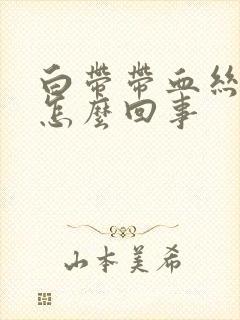 白帶帶血絲
怎麼回事
山本美希